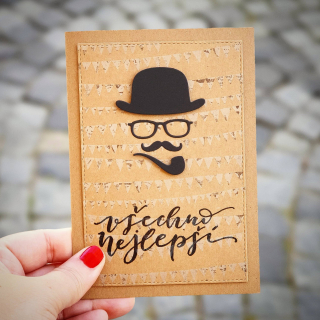 všechno
nejlepší